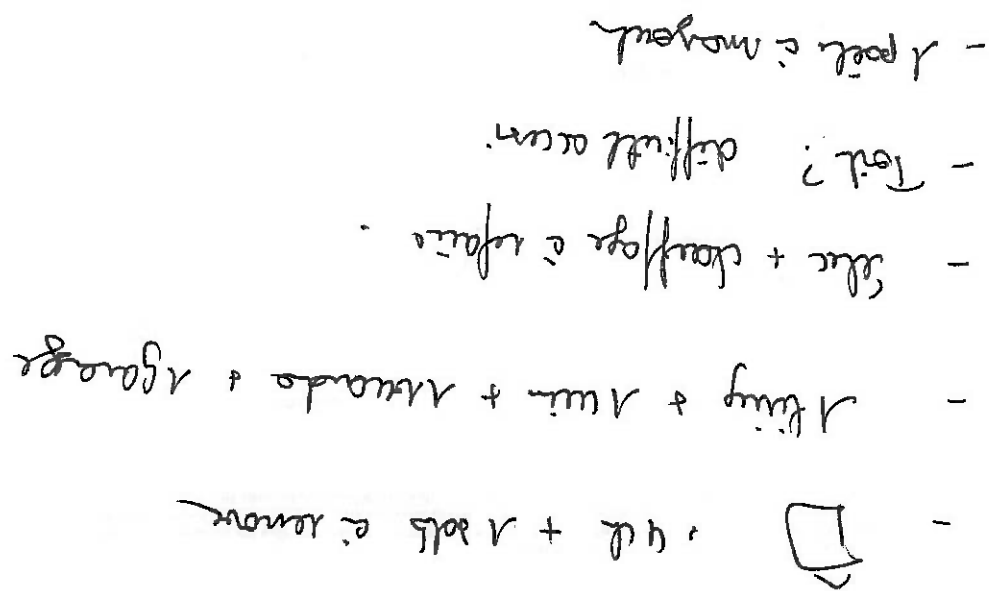 - 4 ch + 1 sdb à renover
- 1 living + 1 cuis + 1 veranda + 1 garage
- élec + chauffage à refaire.
- Toit ? difficile acces
- 1 poêle à mazout